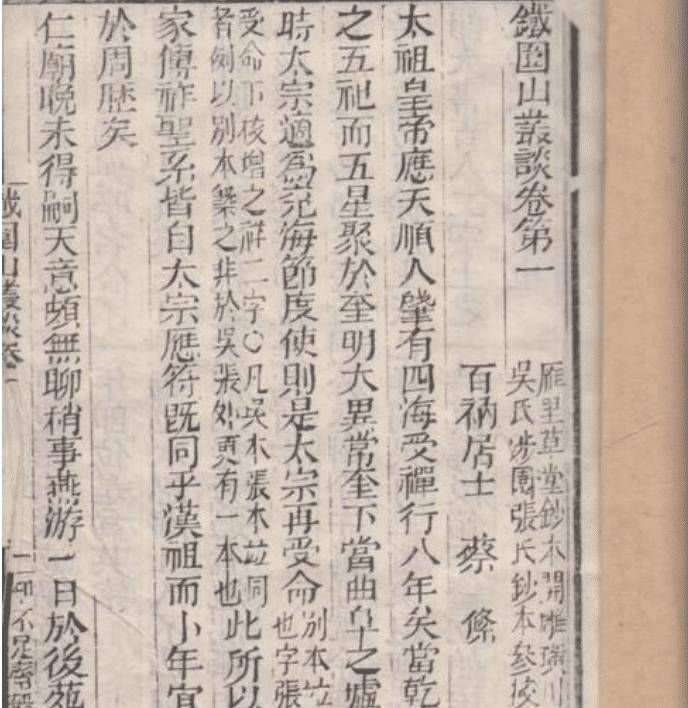 鐵圍山叢談卷第一
雁里草堂鈔本開雕璜川
吳氏涉園張氏鈔本參校
百衲居士 蔡絛
太祖皇帝應天順人肇有四海受禪行八年矣當乾
之五祀而五星聚於奎明大異常奎下當曲阜之墟
時太宗適爲兗海節度使則是太宗再受命
別本竝
也字張
受命下核增之祥二字○凡吳本張本竝同
者例以別本槩之非於吳張外更有一本也
此所以
家傳祚聖系皆自太宗應符既同乎漢祖而卜年宜
於周歷矣
仁廟晚未得嗣天意頗無聊稍事燕游一日於後苑
鐵圍山叢談卷一